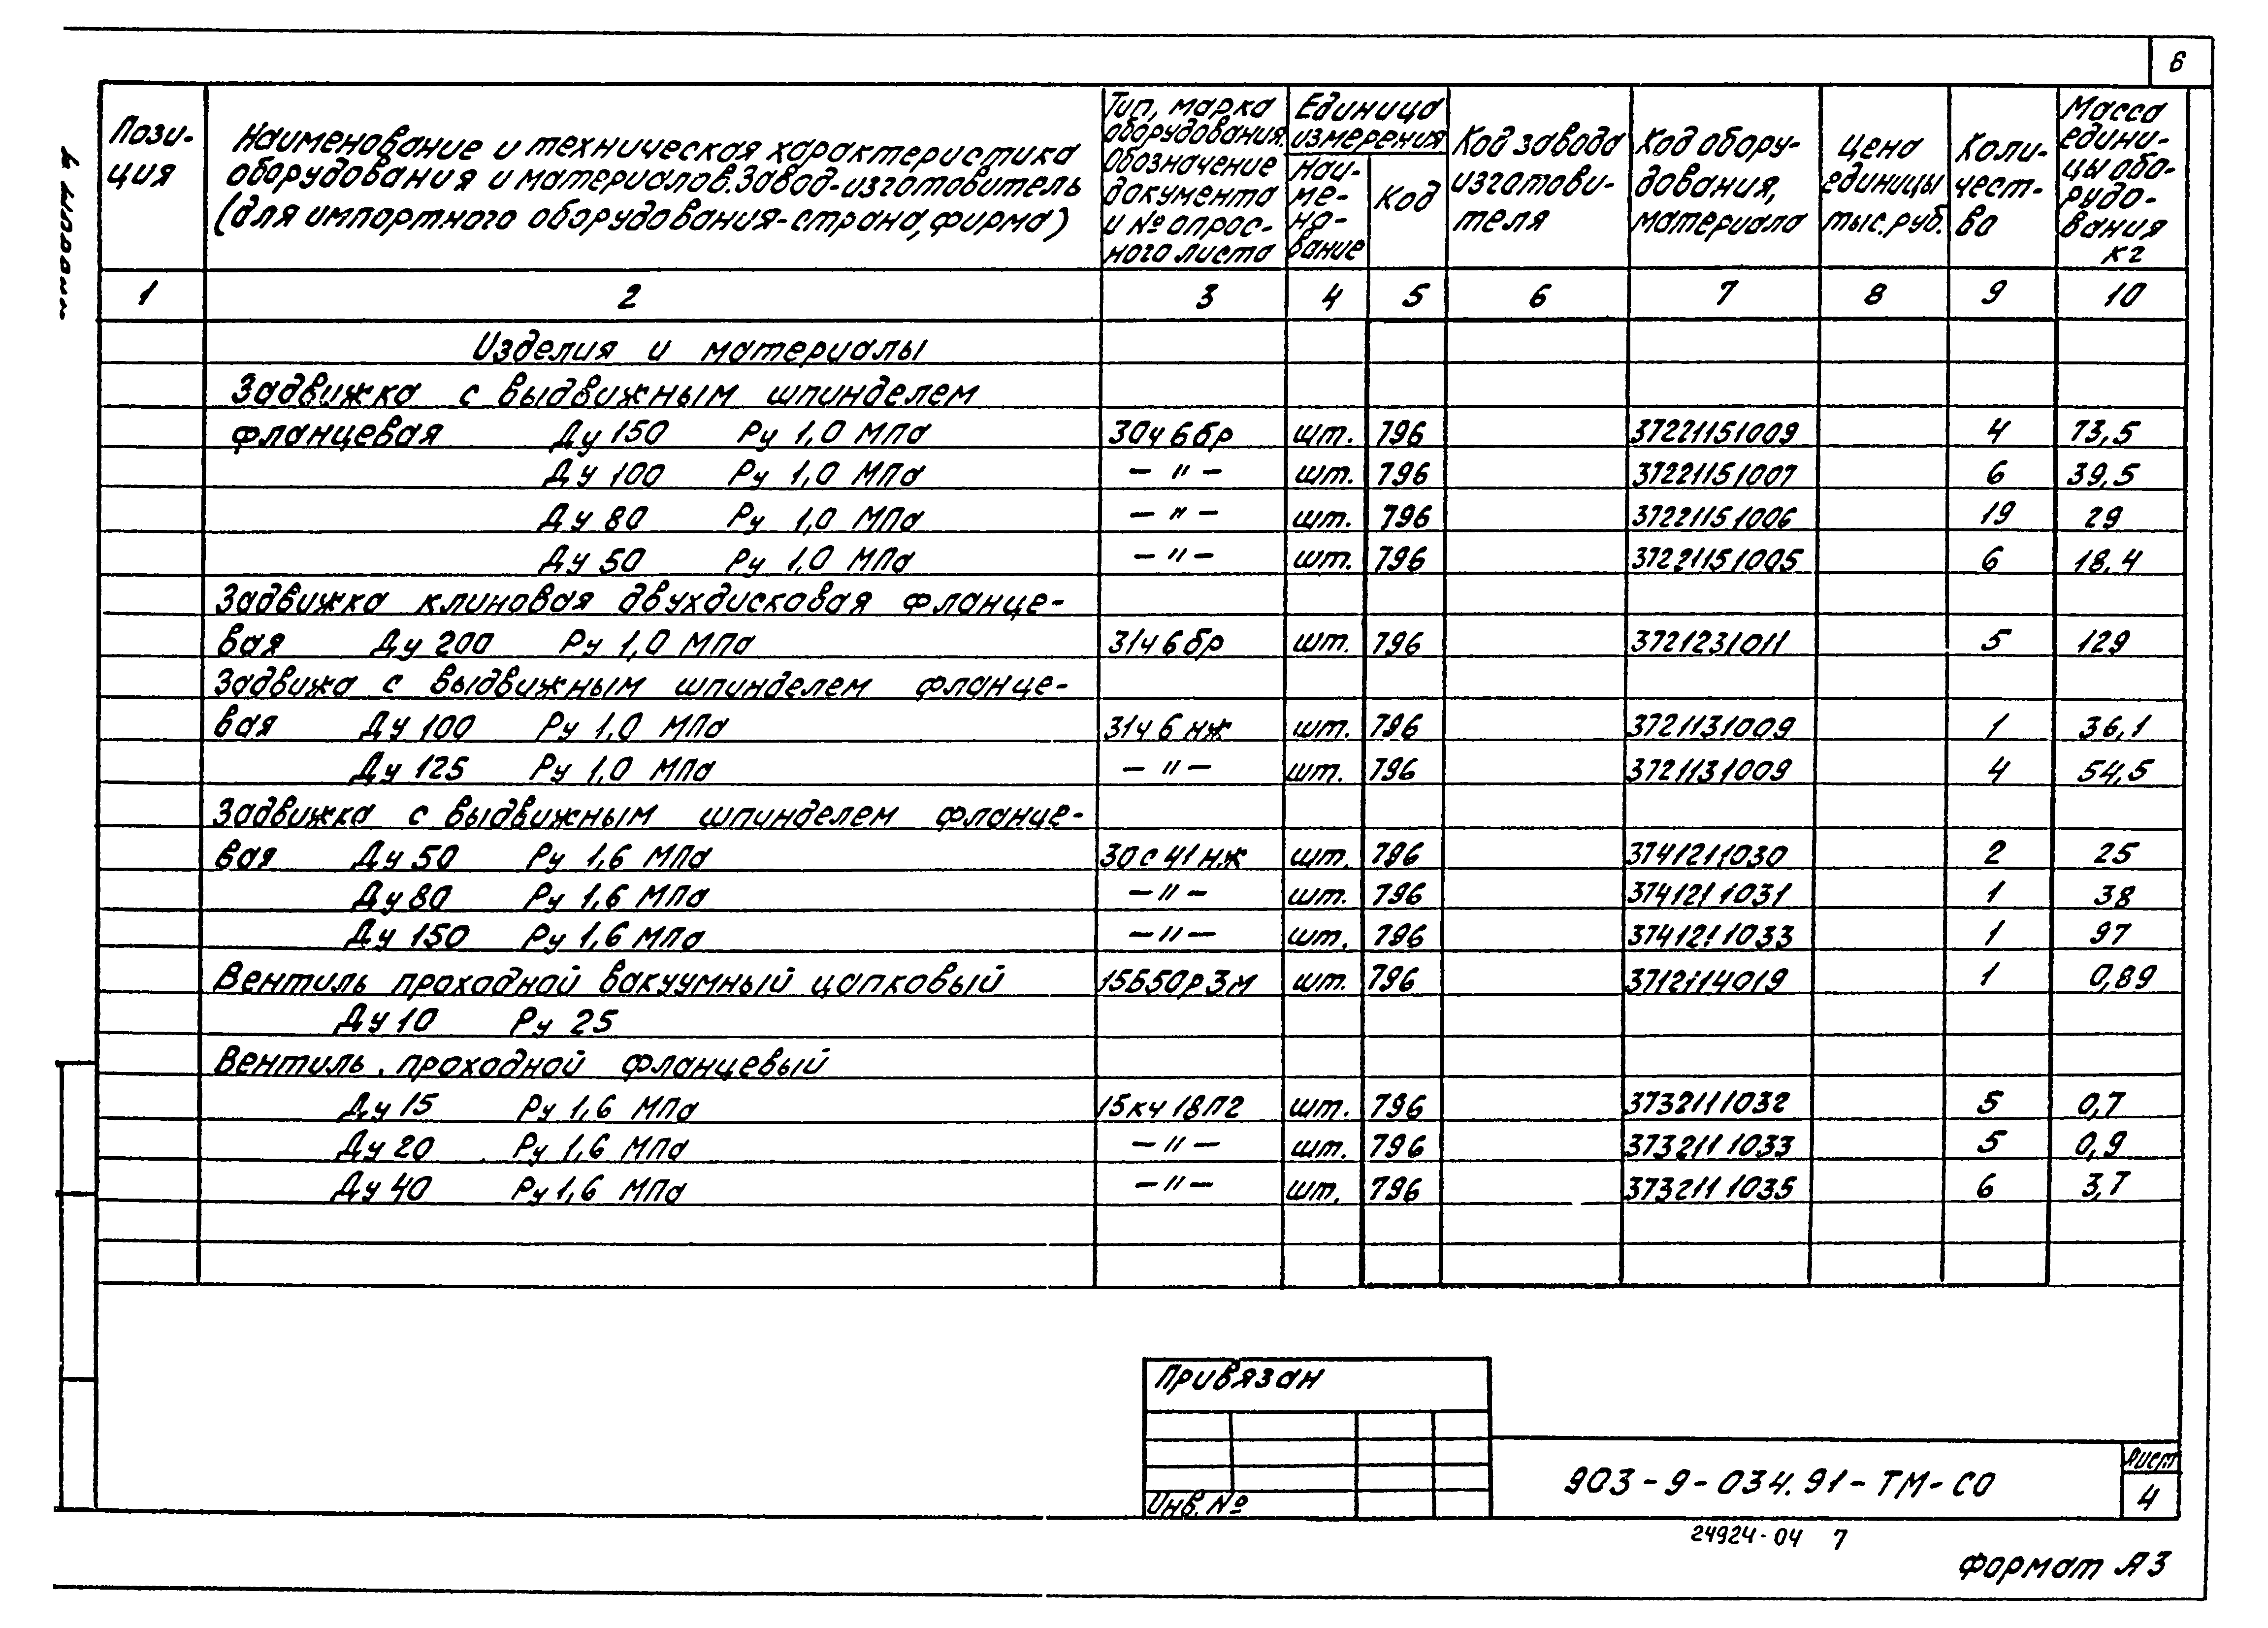 6
Пози-
ция
Наименование и техническая характеристика
оборудования и материалов. Завод-изготовитель
(для импортного оборудования-страна, фирма)
Тип, марка
оборудования.
Обозначение
документа
и № опрос-
ного листа
Единица
измерения
Наи-
ме-
но-
вание
Код
Код завода
изготови-
теля
Код обору-
дования,
материала
Цена
единицы
тыс.руб.
Коли-
чест-
во
Масса
едини-
цы обо-
рудо-
вания
кг
1 2 3 4 5 6 7 8 9 10
Изделия и материалы
Задвижка с выдвижным шпинделем
фланцевая Ду 150 Ру 1,0 МПа 30ч6бр шт. 796 37221151009 4 73,5
Ду 100 Ру 1,0 МПа –〃– шт. 796 37221151007 6 39,5
Ду 80 Ру 1,0 МПа –〃– шт. 796 37221151006 19 29
Ду 50 Ру 1,0 МПа –〃– шт. 796 37221151005 6 18,4
Задвижка клиновая двухдисковая фланце-
вая Ду 200 Ру 1,0 МПа 31ч6бр шт. 796 3721231011 5 129
Задвижа с выдвижным шпинделем фланце-
вая Ду 100 Ру 1,0 МПа 31ч6нж шт. 796 3721131009 1 36,1
Ду 125 Ру 1,0 МПа –〃– шт. 796 3721131009 4 54,5
Задвижка с выдвижным шпинделем фланце-
вая Ду 50 Ру 1,6 МПа 30с41нж шт. 796 3741211030 2 25
Ду 80 Ру 1,6 МПа –〃– шт. 796 3741211031 1 38
Ду 150 Ру 1,6 МПа –〃– шт. 796 3741211033 1 97
Вентиль проходной вакуумный цапковый 15Б50р3м шт. 796 3712114019 1 0,89
Ду 10 Ру 25
Вентиль проходной фланцевый
Ду 15 Ру 1,6 МПа 15кч18п2 шт. 796 3732111032 5 0,7
Ду 20 Ру 1,6 МПа –〃– шт. 796 3732111033 5 0,9
Ду 40 Ру 1,6 МПа –〃– шт. 796 3732111035 6 3,7
Привязан
Инв. №
903-9-034.91-ТМ-СО
Лист
4
24924-04 7
Формат А3